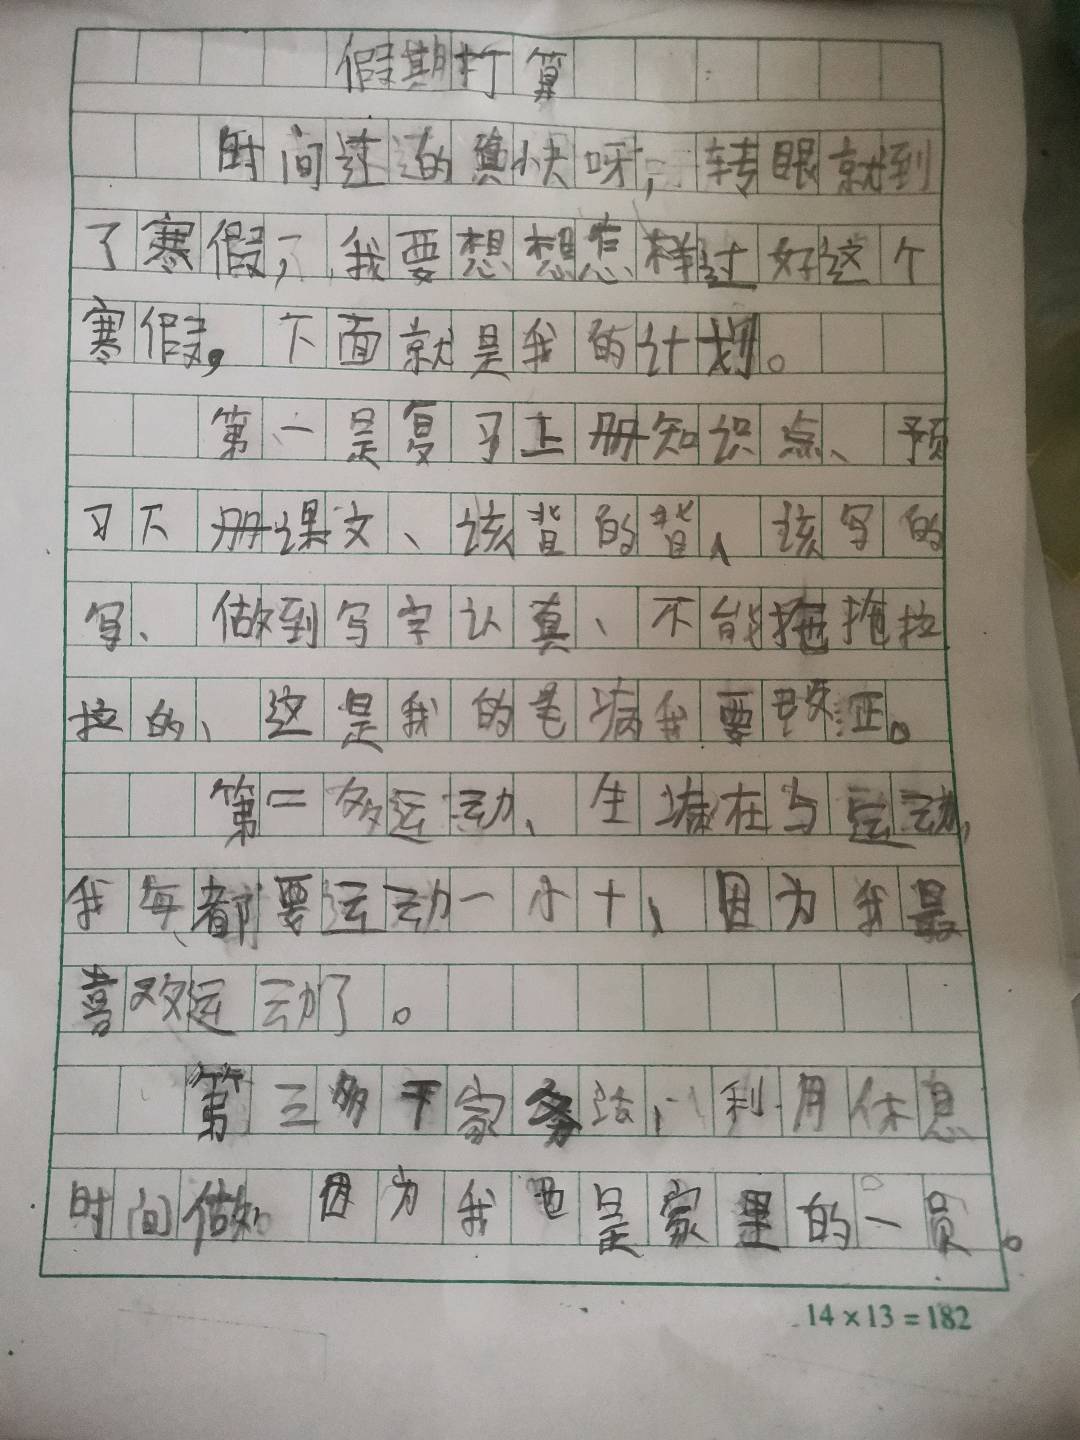 假期打算
时间过的真快呀,转眼就到
了寒假,我要想想怎样过好这个
寒假。下面就是我的计划。
第一是复习上册知识点、预
习下册课文、该背的背、该写的
写、做到写字认真、不能拖拖拉
拉的、这是我的毛病我要改正。
第二多运动、生 在与运动,
我每 都要运动一小 、因为我最
喜欢运动了。
第三多干家务 ,利用休息
时间做 因为我也是家里的一员。
14×13=182